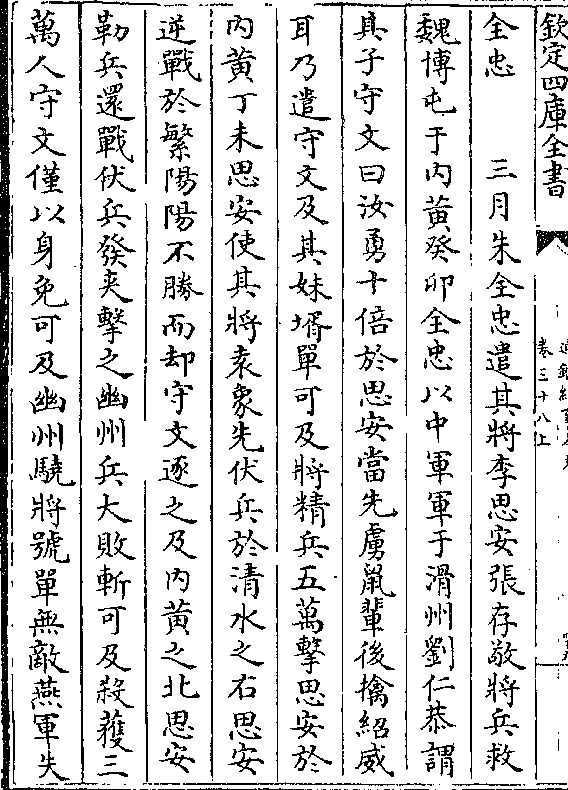 欽定四庫全書
卷三十八上
全忠　三月朱全忠遣其將李思安張存敬將兵救
魏博屯于内黄癸卯全忠以中軍軍于滑州劉仁恭謂
其子守文曰汝勇十倍於思安當先虜鼠輩後擒紹威
耳乃遣守文及其妹壻單可及將精兵五萬擊思安於
内黄丁未思安使其將袁象先伏兵於清水之右思安
逆戰於繁陽陽不勝而却守文逐之及内黄之北思安
勒兵還戰伏兵發夾擊之幽州兵大敗斬可及殺獲三
萬人守文僅以身免可及幽州驍將號單無敵燕軍失